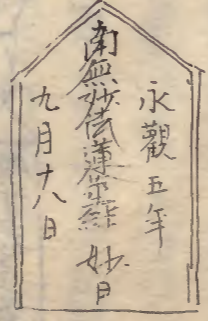 永觀五年
南無妙法蓮華経 妙日
九月十八日